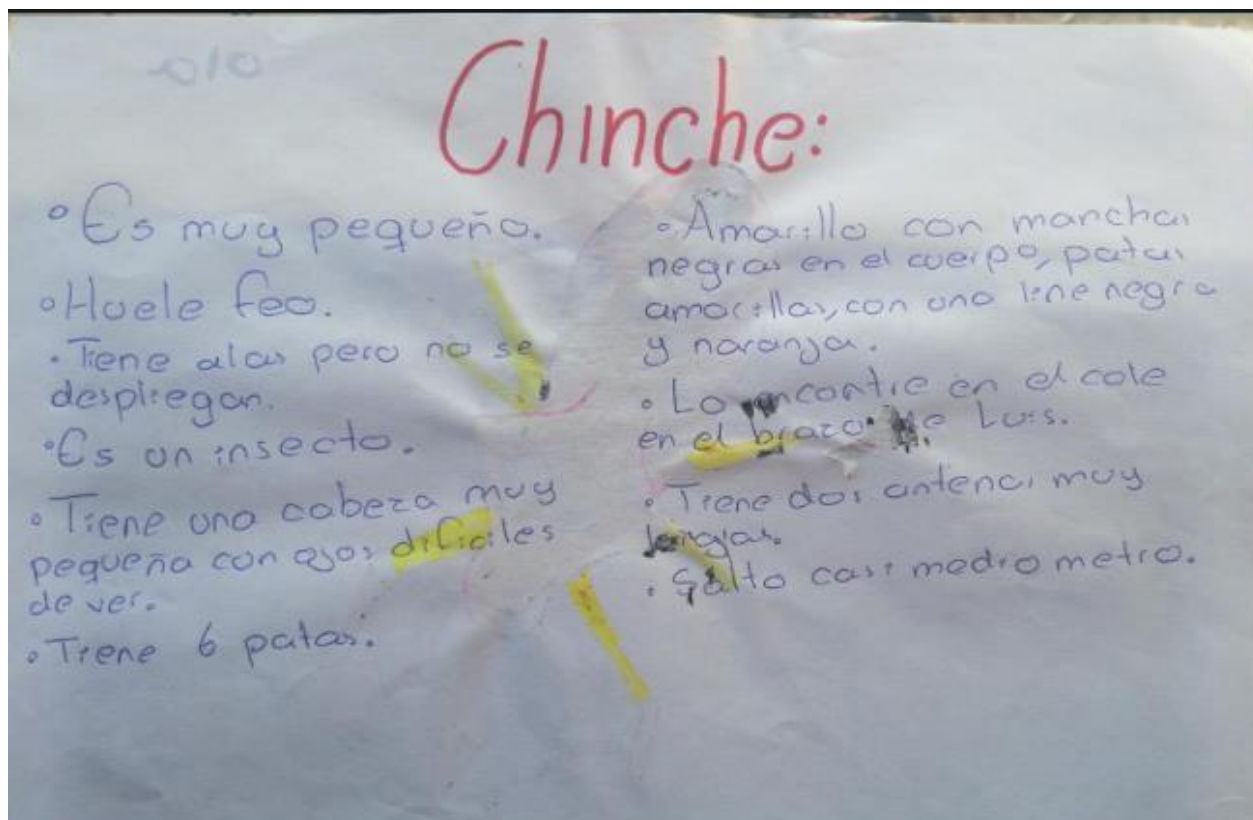 Chinche:
° Es muy pequeño.
° Huele feo.
• Tiene alas pero no se
despliegan.
• Es un insecto.
• Tiene una cabeza muy
pequeña con ojos dificiles
de ver.
• Tiene 6 patas.
• Amarillo con manchas
negras en el cuerpo, patas
amarillas, con una line negra
y naranja.
• Lo encontre en el cole
en el brazo de Luis.
• Tiene dos antenas muy
largas.
• Salto casi medio metro.